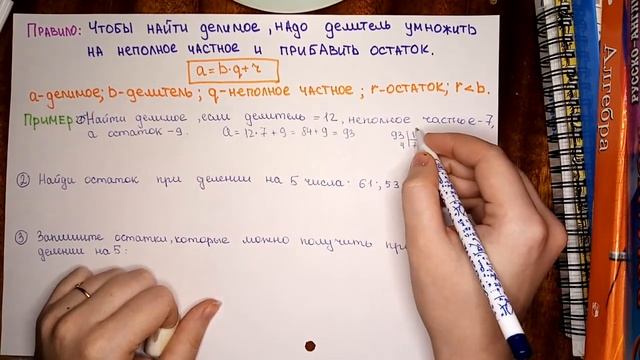 Правило: Чтобы найти делимое, надо делитель умножить
на неполное частное и прибавить остаток.
a=b·q+r
a-делимое; b-делитель; q-неполное частное; r-остаток; r<b.
Пример ① Найти делимое, если делитель =12, неполное частное-7,
а остаток-9. a=12·7+9=84+9=93
② Найди остаток при делении на 5 числа: 61; 53
③ Запишите остатки, которые можно получить
делении на 5:
Алгебра